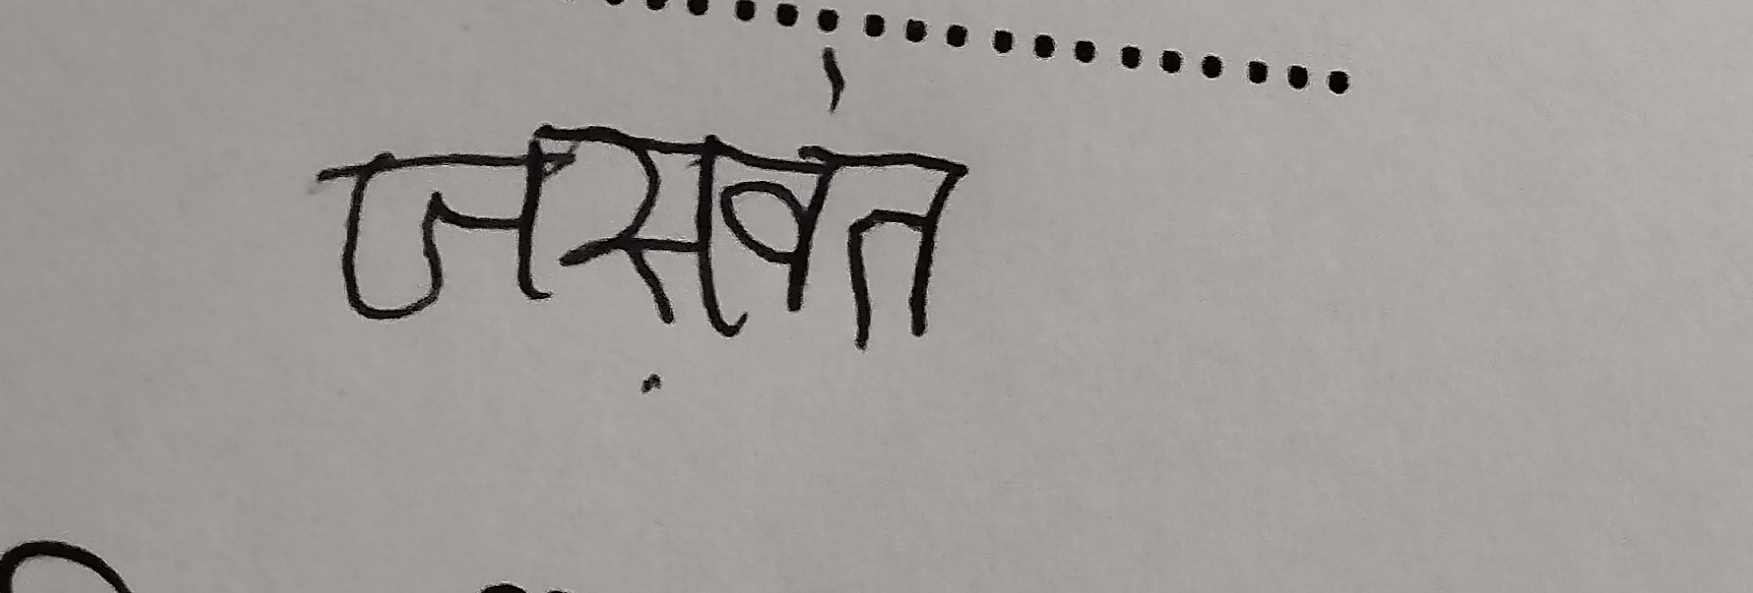 जसवंत